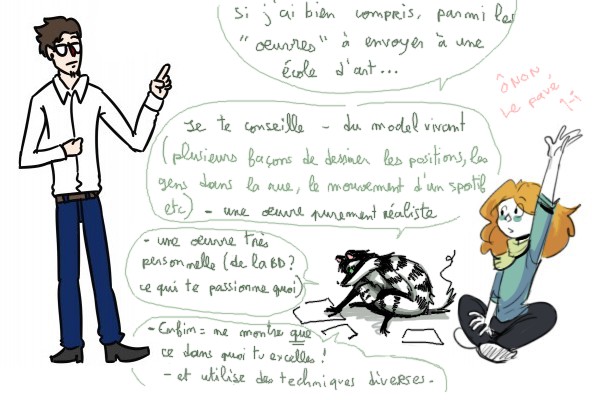 si j'ai bien compris, parmi les
"oeuvres" à envoyer à une
école d'art...
ÔNON
Le pavé
je te conseille - du model vivant
(plusieurs façons de dessiner les positions, les
gens dans la rue, le mouvement d'un sportif
etc) - une oeuvre purement réaliste
- une oeuvre très
personnelle (de la BD?
ce qui te passionne quoi)
- Enfin = ne montre que
ce dans quoi tu excelles!
- et utilise des techniques diverses.